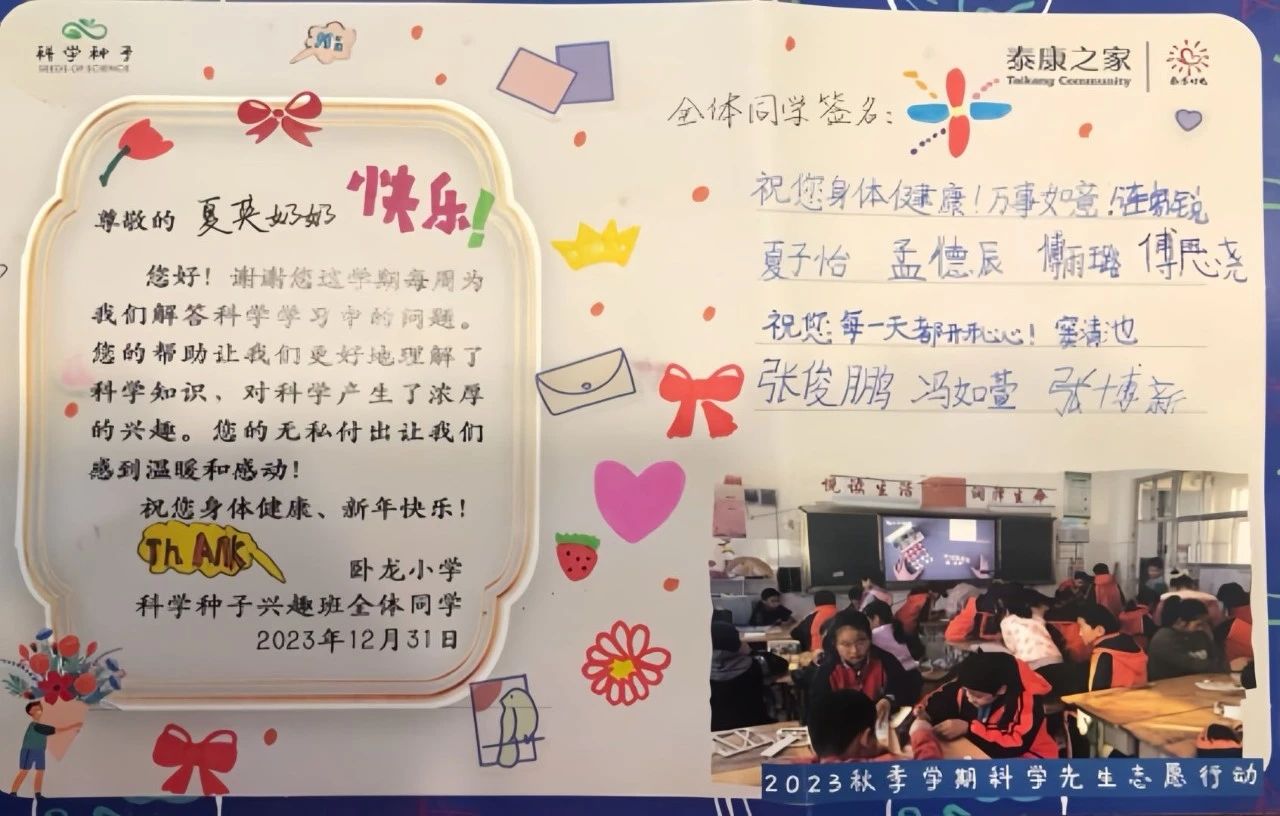 科学种子
SEEDS OF SCIENCE
快乐!
尊敬的 夏英奶奶
您好！谢谢您这学期每周为
我们解答科学学习中的问题。
您的帮助让我们更好地理解了
科学知识，对科学产生了浓厚
的兴趣。您的无私付出让我们
感到温暖和感动！
祝您身体健康、新年快乐！
ThANK
卧龙小学
科学种子兴趣班全体同学
2023年12月31日
泰康之家
Taikang Community
全体同学签名：
祝您身体健康！万事如意！
夏子怡 孟德辰 傅丽璐 傅思尧
祝您每一天都开开心心！窦清池
张俊鹏 冯如萱 张博新
悦读生活 润泽生命
2023秋季学期科学先生志愿行动